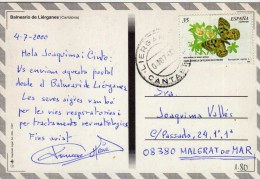 Balneario de Liérganes (Cantabria)
4-7-2000
Hola Joaquima i Cinto:
Us enviem aquesta postal
desde el Balneario de Liérganes.
Les seves aigües van bé
per les vies respiratòries i
per tractaments reumatologics.
Fins aviat
35
ESPAÑA
CANTA
Sra.
Joaquima Vallès
C/Passada, 24, 1º, 1ª
08380 MALGRAT de MAR